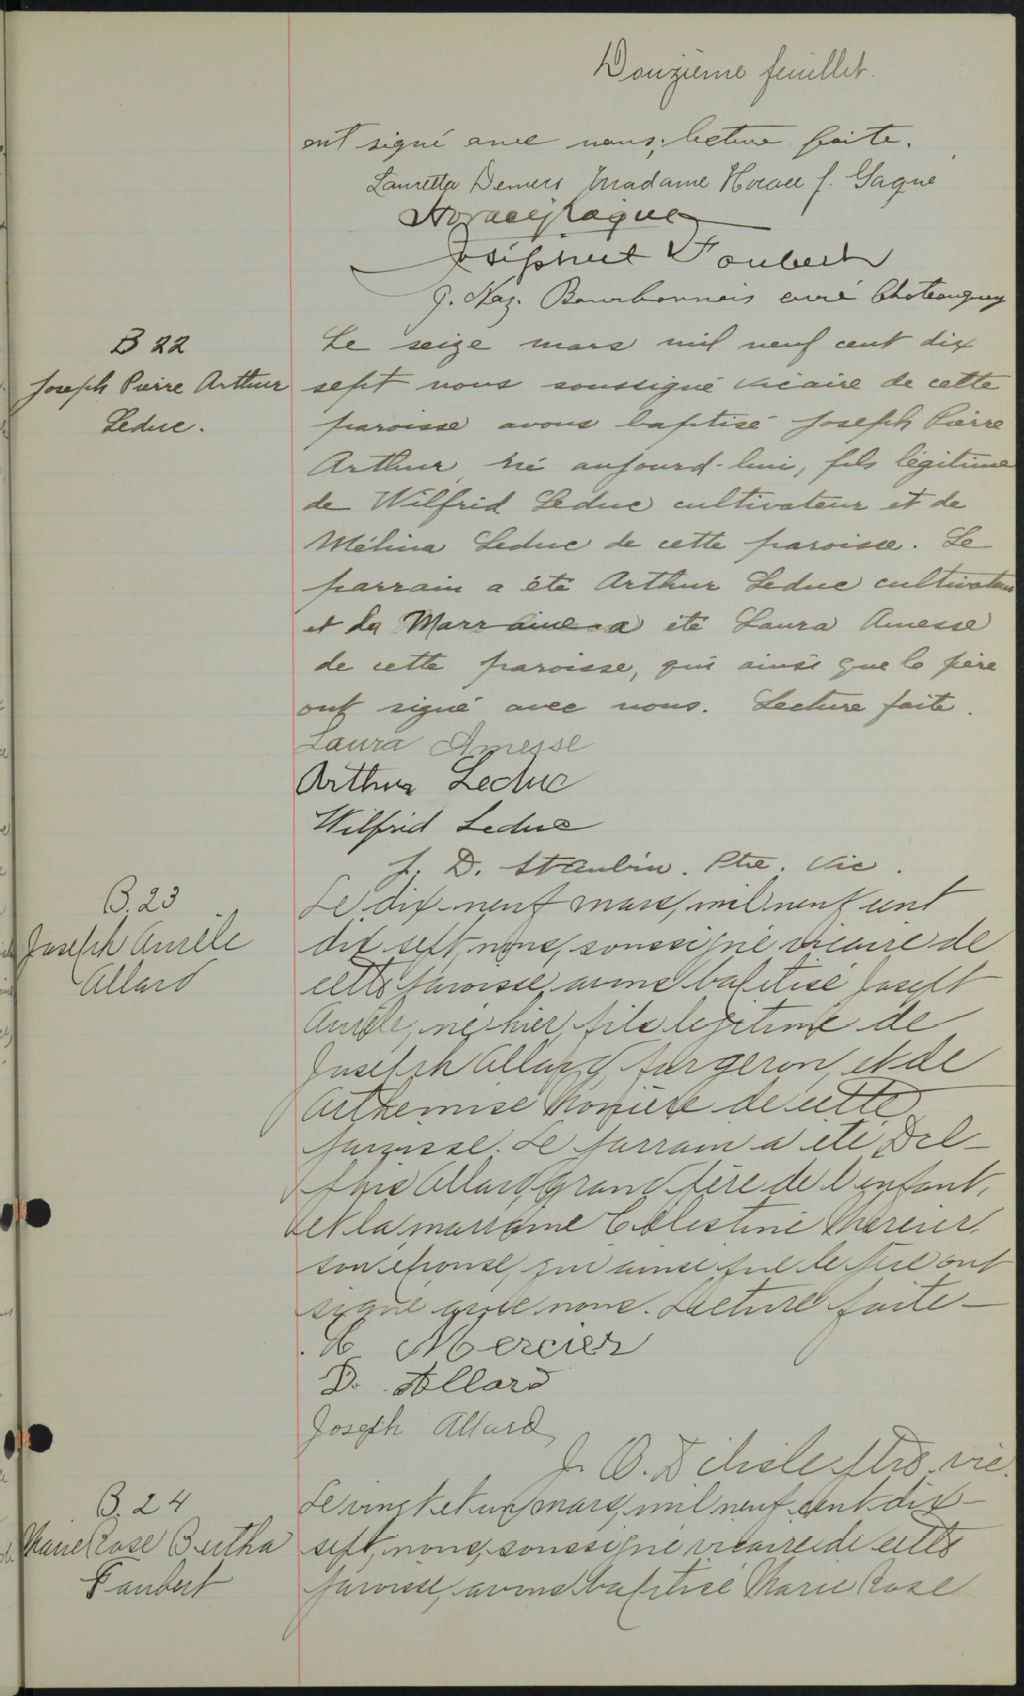 Douzième feuillet.
ont signé avec nous; lecture faite.
Lauretta Demers Madame Horace J. Gagné
Horace J Gagné
Josephuet Foubert
J. Naz. Bourbonnais curé Chateauguay
B 22
Joseph Pierre Arthur
Leduc.
Le seize mars mil neuf cent dix
sept nous soussigné vicaire de cette
paroisse avons baptisé Joseph Pierre
Arthur, né aujourd-hui, fils légitime
de Wilfrid Leduc cultivateur et de
Mélina Leduc de cette paroisse. Le
parrain a été Arthur Leduc cultivateur
et la Marraine a été Laura Amesse
de cette paroisse, qui ainsi que le père
ont signé avec nous. Lecture faite.
Laura Amesse
Arthur Leduc
Wilfrid Leduc
J. D. St Aubin. Ptre. Vic.
B. 23
Joseph Aurèle
Allard
Le dix-neuf mars, mil neuf cent
dix sept, nous, soussigné vicaire de
cette paroisse, avons baptisé Joseph
Aurèle, né hier, fils légitime de
Joseph Allard, forgeron, et de
Arthemise de cette
paroisse. Le parrain a été Del-
phis Allard, grand père de l'enfant,
et la marraine Célestine Mercier
son épouse, qui ainsi que le père ont
signé avec nous. Lecture faite—
C Mercier
D. Allard
Joseph Allard
J. O. Delisle ptre. vic.
B. 24
Marie Rose Bertha
Faubert
Le vingt et un mars, mil neuf cent dix-
sept, nous, soussigné vicaire de cette
paroisse, avons baptisé Marie Rose